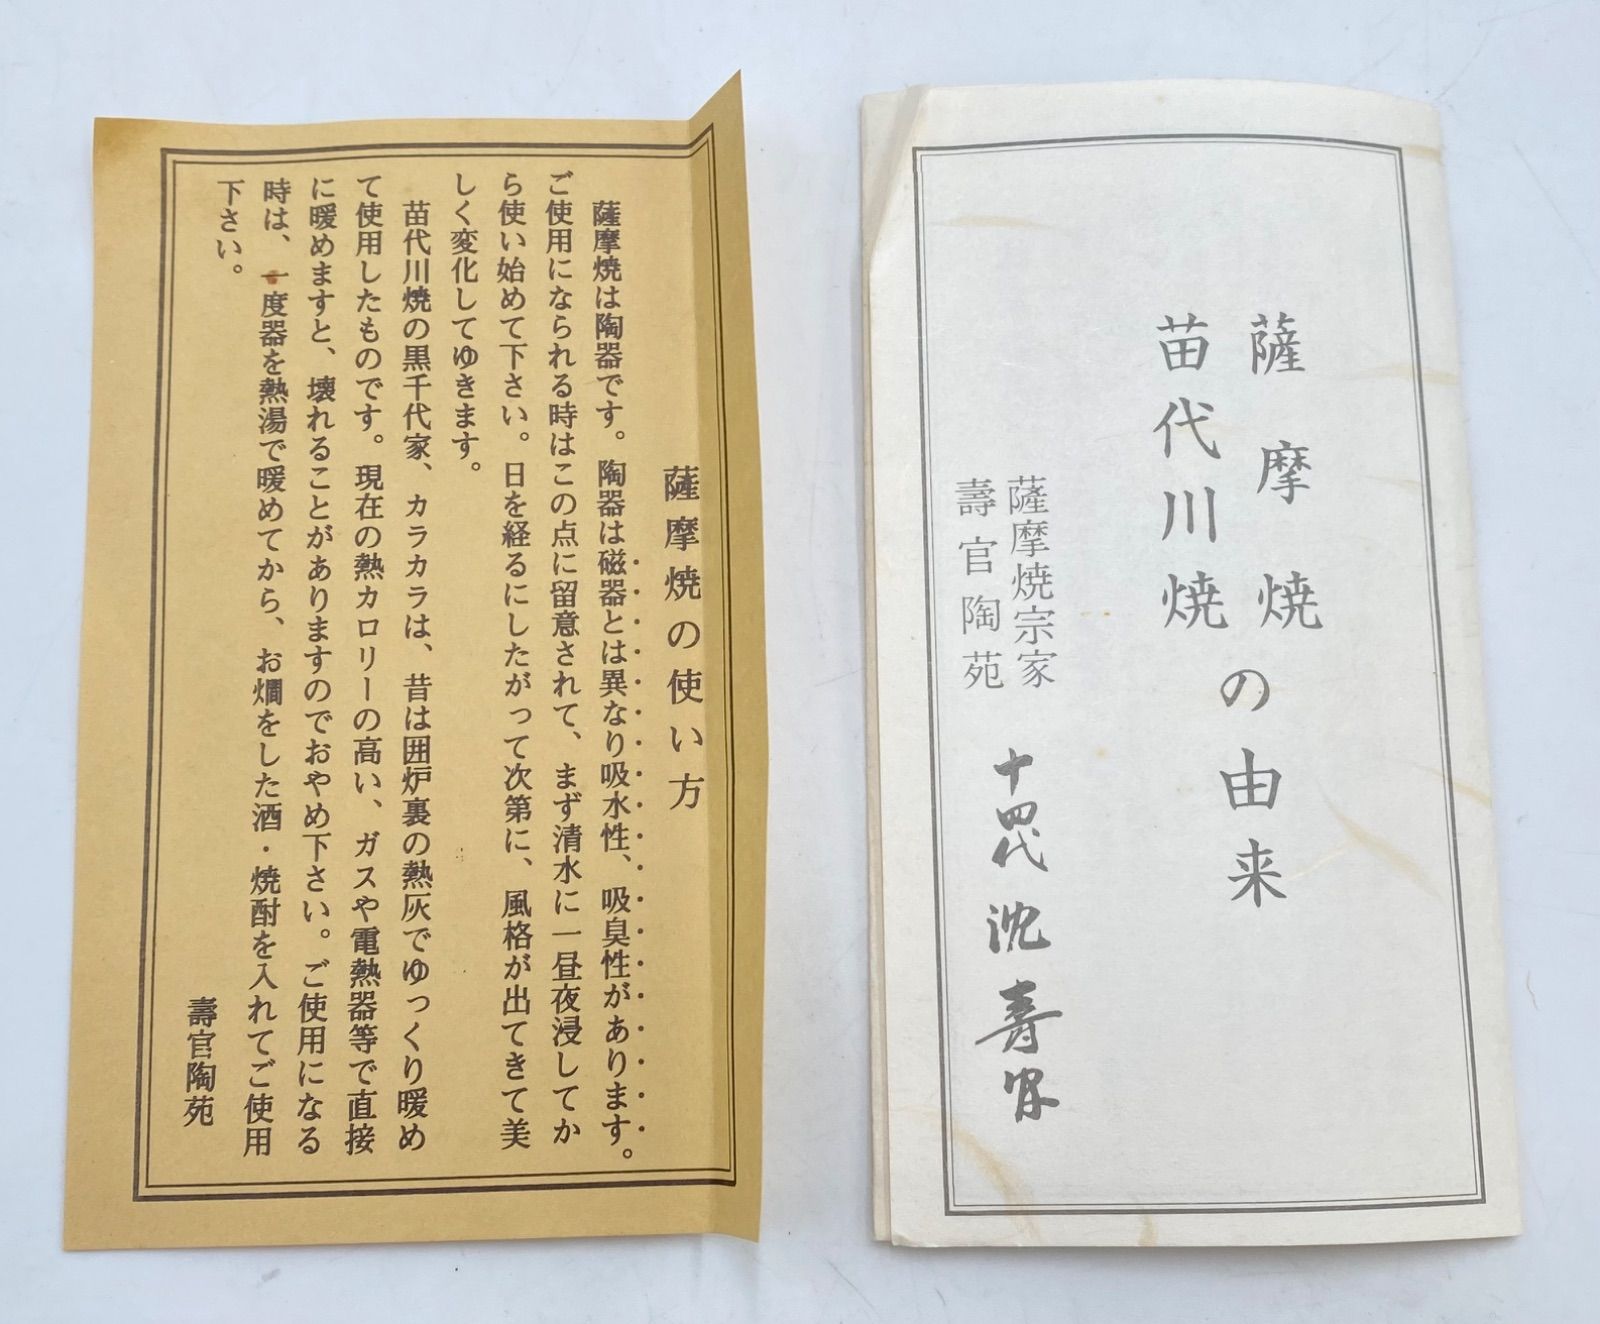 薩摩焼の使い方
薩摩焼は陶器です。陶器は磁器とは異なり吸水性、吸臭性があります。
ご使用になられる時はこの点に留意されて、まず清水に一昼夜浸してか
ら使い始めて下さい。日を経るにしたがって次第に、風格が出てきて美
しく変化してゆきます。
苗代川焼の黒千代家、カラカラは、昔は囲炉裏の熱灰でゆっくり暖め
て使用したものです。現在の熱カロリーの高い、ガスや電熱器等で直接
に暖めますと、壊れることがありますのでおやめ下さい。ご使用になる
時は、一度器を熱湯で暖めてから、お燗をした酒・焼酎を入れてご使用
下さい。
壽官陶苑
薩摩焼
苗代川焼
の由来
薩摩焼宗家
壽官陶苑
十四代 沈壽官